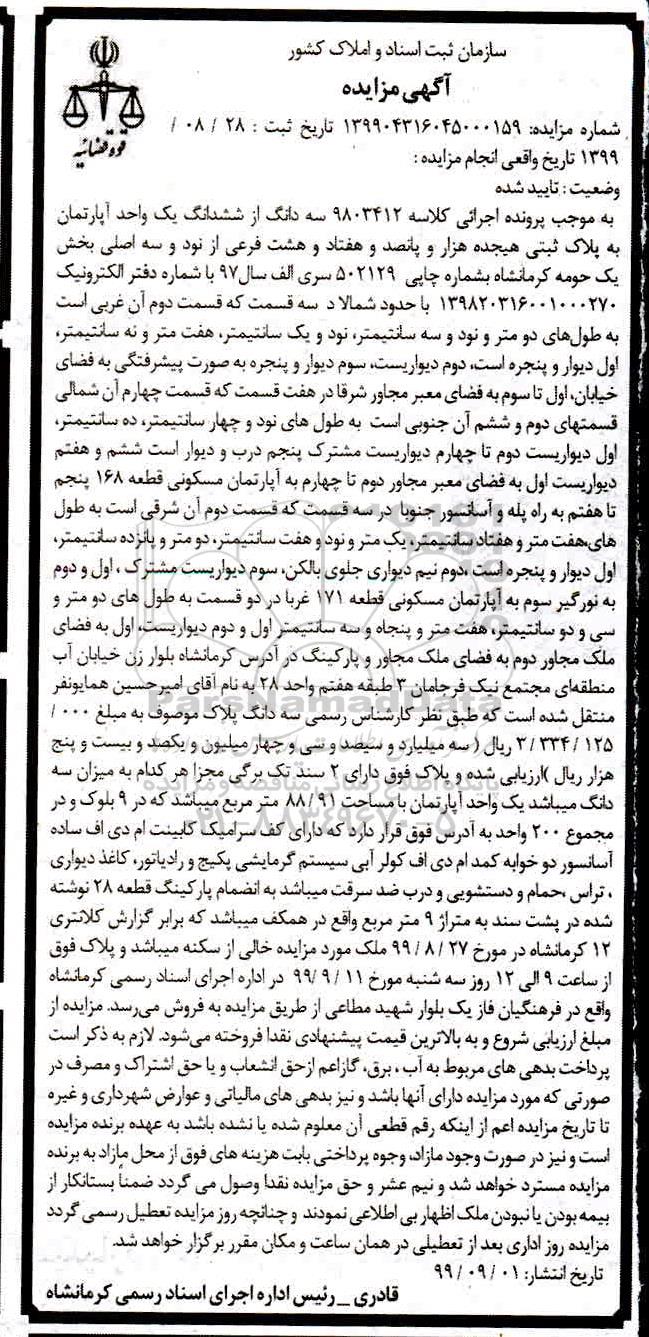 سازمان ثبت اسناد و املاک کشور
آگهی مزایده
قوه قضائیه
شماره مزایده: ۱۳۹۹۰۴۳۱۶۰۴۵۰۰۰۱۵۹ تاریخ ثبت : ۲۸ / ۰۸ /
۱۳۹۹ تاریخ واقعی انجام مزایده :
وضعیت : تایید شده
به موجب پرونده اجرائی کلاسه ۹۸۰۳۴۱۲ سه دانگ از ششدانگ یک واحد آپارتمان
به پلاک ثبتی هیجده هزار و پانصد و هفتاد و هشت فرعی از نود و سه اصلی بخش
یک حومه کرمانشاه بشماره چاپی ۵۰۲۱۲۹ سری الف سال۹۷ با شماره دفتر الکترونیک
۱۳۹۸۲۰۳۱۶۰۰۱۰۰۰۲۷۰ با حدود شمالا د سه قسمت که قسمت دوم آن غربی است
به طول‌های دو متر و نود و سه سانتیمتر، نود و یک سانتیمتر، هفت متر و نه سانتیمتر،
اول دیوار و پنجره است، دوم دیواریست، سوم دیوار و پنجره به صورت پیشرفتگی به فضای
خیابان، اول تا سوم به فضای معبر مجاور شرقا در هفت قسمت که قسمت چهارم آن شمالی
قسمتهای دوم و ششم آن جنوبی است به طول های نود و چهار سانتیمتر، ده سانتیمتر،
اول دیواریست دوم تا چهارم دیواریست مشترک پنجم درب و دیوار است ششم و هفتم
دیواریست اول به فضای معبر مجاور دوم تا چهارم به آپارتمان مسکونی قطعه ۱۶۸ پنجم
تا هفتم به راه پله و آسانسور جنوبا در سه قسمت که قسمت دوم آن شرقی است به طول
های،هفت متر و هفتاد سانتیمتر، یک متر و نود و هفت سانتیمتر، دو متر و پانزده سانتیمتر،
اول دیوار و پنجره است ،دوم نیم دیواری جلوی بالکن، سوم دیواریست مشترک ، اول و دوم
به نورگیر سوم به آپارتمان مسکونی قطعه ۱۷۱ غربا در دو قسمت به طول های دو متر و
سی و دو سانتیمتر، هفت متر و پنجاه و سه سانتیمتر اول و دوم دیواریست، اول به فضای
ملک مجاور دوم به فضای ملک مجاور و پارکینگ در آدرس کرمانشاه بلوار زن خیابان آب
منطقه‌ای مجتمع نیک فرجامان ۳ طبقه هفتم واحد ۲۸ به نام آقای امیرحسین همایونفر
منتقل شده است که طبق نظر کارشناس رسمی سه دانگ پلاک موصوف به مبلغ ۰۰۰ /
۱۲۵ / ۳/ ۳۳۴ ریال ( سه میلیارد و سیصد و سی و چهار میلیون و یکصد و بیست و پنج
هزار ریال )ارزیابی شده و پلاک فوق دارای ۲ سند تک برگی مجزا هر کدام به میزان سه
دانگ میباشد یک واحد آپارتمان با مساحت ۹۱ / ۸۸ متر مربع میباشد که در ۹ بلوک و در
مجموع ۲۰۰ واحد به آدرس فوق قرار دارد که دارای کف سرامیک کابینت ام دی اف ساده
آسانسور دو خوابه کمد ام دی اف کولر آبی سیستم گرمایشی پکیج و رادیاتور، کاغذ دیواری
، تراس ،حمام و دستشویی و درب ضد سرقت میباشد به انضمام پارکینگ قطعه ۲۸ نوشته
شده در پشت سند به متراژ ۹ متر مربع واقع در همکف میباشد که برابر گزارش کلانتری
۱۲ کرمانشاه در مورخ ۲۷ / ۸ / ۹۹ ملک مورد مزایده خالی از سکنه میباشد و پلاک فوق
از ساعت ۹ الی ۱۲ روز سه شنبه مورخ ۱۱ / ۹ /۹۹ در اداره اجرای اسناد رسمی کرمانشاه
واقع در فرهنگیان فاز یک بلوار شهید مطاعی از طریق مزایده به فروش می‌رسد. مزایده از
مبلغ ارزیابی شروع و به بالاترین قیمت پیشنهادی نقدا فروخته می‌شود. لازم به ذکر است
پرداخت بدهی های مربوط به آب ، برق، گازاعم ازحق انشعاب و یا حق اشتراک و مصرف در
صورتی که مورد مزایده دارای آنها باشد و نیز بدهی های مالیاتی و عوارض شهرداری و غیره
تا تاریخ مزایده اعم از اینکه رقم قطعی آن معلوم شده یا نشده باشد به عهده برنده مزایده
است و نیز در صورت وجود مازاد، وجوه پرداختی بابت هزینه های فوق از محل مازاد به برنده
مزایده مسترد خواهد شد و نیم عشر و حق مزایده نقدا وصول می گردد ضمناً بستانکار از
بیمه بودن یا نبودن ملک اظهار بی اطلاعی نمودند و چنانچه روز مزایده تعطیل رسمی گردد
مزایده روز اداری بعد از تعطیلی در همان ساعت و مکان مقرر برگزار خواهد شد.
تاریخ انتشار: ۰۱ / ۰۹ / ۹۹
قادری _ رئیس اداره اجرای اسناد رسمی کرمانشاه
ParsNamadData
۰۲۱-۸۸۳۴۹۶۷۰-۵